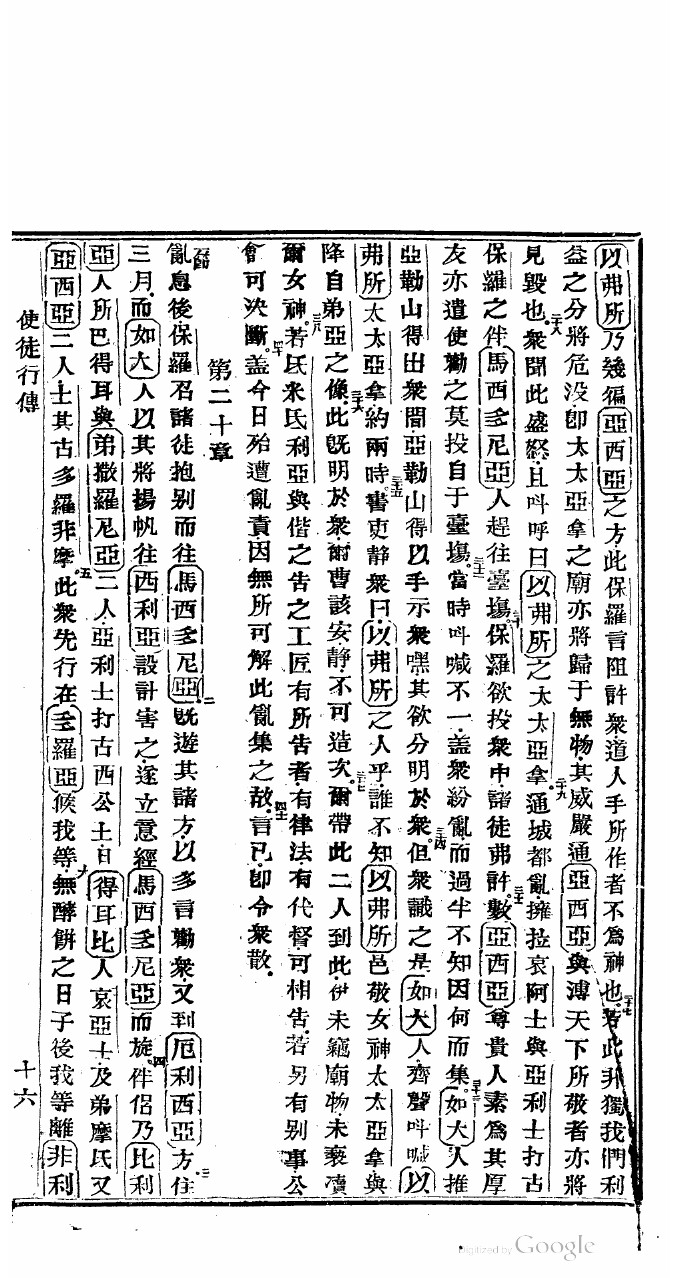 以弗所乃幾徧亞西亞之方此保羅言阻許衆道人手所作者不爲神也二十七若此非獨我們利
益之分將危没卽太太亞拿之廟亦將歸于無物其威嚴通亞西亞與溥天下所敬者亦將
見毀也二十八衆聞此盛怒且呌呼曰以弗所之太太亞拿二十九通城都亂擁拉哀阿士與亞利士打古
保羅之伴馬西多尼亞人趕往臺塲三十保羅欲投衆中諸徒弗許三十一數亞西亞尊貴人素爲其厚
友亦遣使勸之莫投自于臺塲三十二當時呌喊不一盖衆紛亂而過半不知因何而集三十三如大人推
亞勒山得出衆間亞勒山得以手示衆嘿其欲分明於衆三十四但衆識之是如大人齊聲呌喊以
弗所太太亞拿約兩時三十五書吏静衆曰以弗所之人乎誰不知以弗所邑敬女神太太亞拿與
降自弟亞之像三十六此旣明於衆爾曹該安静不可造次三十七爾帶此二人到此伊未竊廟物未褻瀆
爾女神三十八若氐米氐利亞與偕之告之工匠有所告者有律法有代督可相告若另有别事公
會可決斷四十盖今日殆遭亂責因無所可解此亂集之故四十一言已卽令衆散
第二十章
亂息後保羅召諸徒抱别而往馬西多尼亞二旣遊其諸方以多言勸衆又到厄利西亞方三住
三月而如大人以其將揚帆往西利亞設計害之遂立意經馬西多尼亞而旋四伴侶乃比利
亞人所巴得耳與弟撒羅尼亞二人亞利士打古西公土曰得耳比人哀亞士及弟摩氐又
亞西亞二人士其古多羅非摩五此衆先行在多羅亞候我等六無酵餅之日子後我等離非利
使徒行傳
十六
Digitized by Google